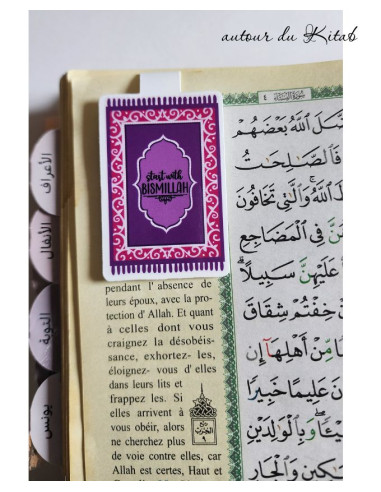 autour du Kitab
٤
سورة النساء
start with
BISMILLAH
الأعراف
الأنفال
التوبة
يونس
pendant l' absence de
leurs époux, avec la pro-
tection d' Allah. Et quant
à celles dont vous
craignez la désobéis-
sance, exhortez- les,
éloignez- vous d' elles
dans leurs lits et
frappez les. Si
elles arrivent à
vous obéir, alors
ne cherchez plus
de voie contre elles, car
Allah est certes, Haut et
ٱللَّهُ بَعْضَهُمْ
فَٱلصَّـٰلِحَـٰتُ
ٱللَّهُ وَٱلَّـٰتِى تَخَافُونَ
فِى ٱلْمَضَاجِعِ
عَلَيْهِنَّ سَبِيلًا
خِفْتُمْ شِقَاقَ
مِّنْ أَهْلِهَآ إِن
عَلِيمًا خَبِيرًا
وَبِٱلْوَٰلِدَيْنِ
وَٱلْجَارِ